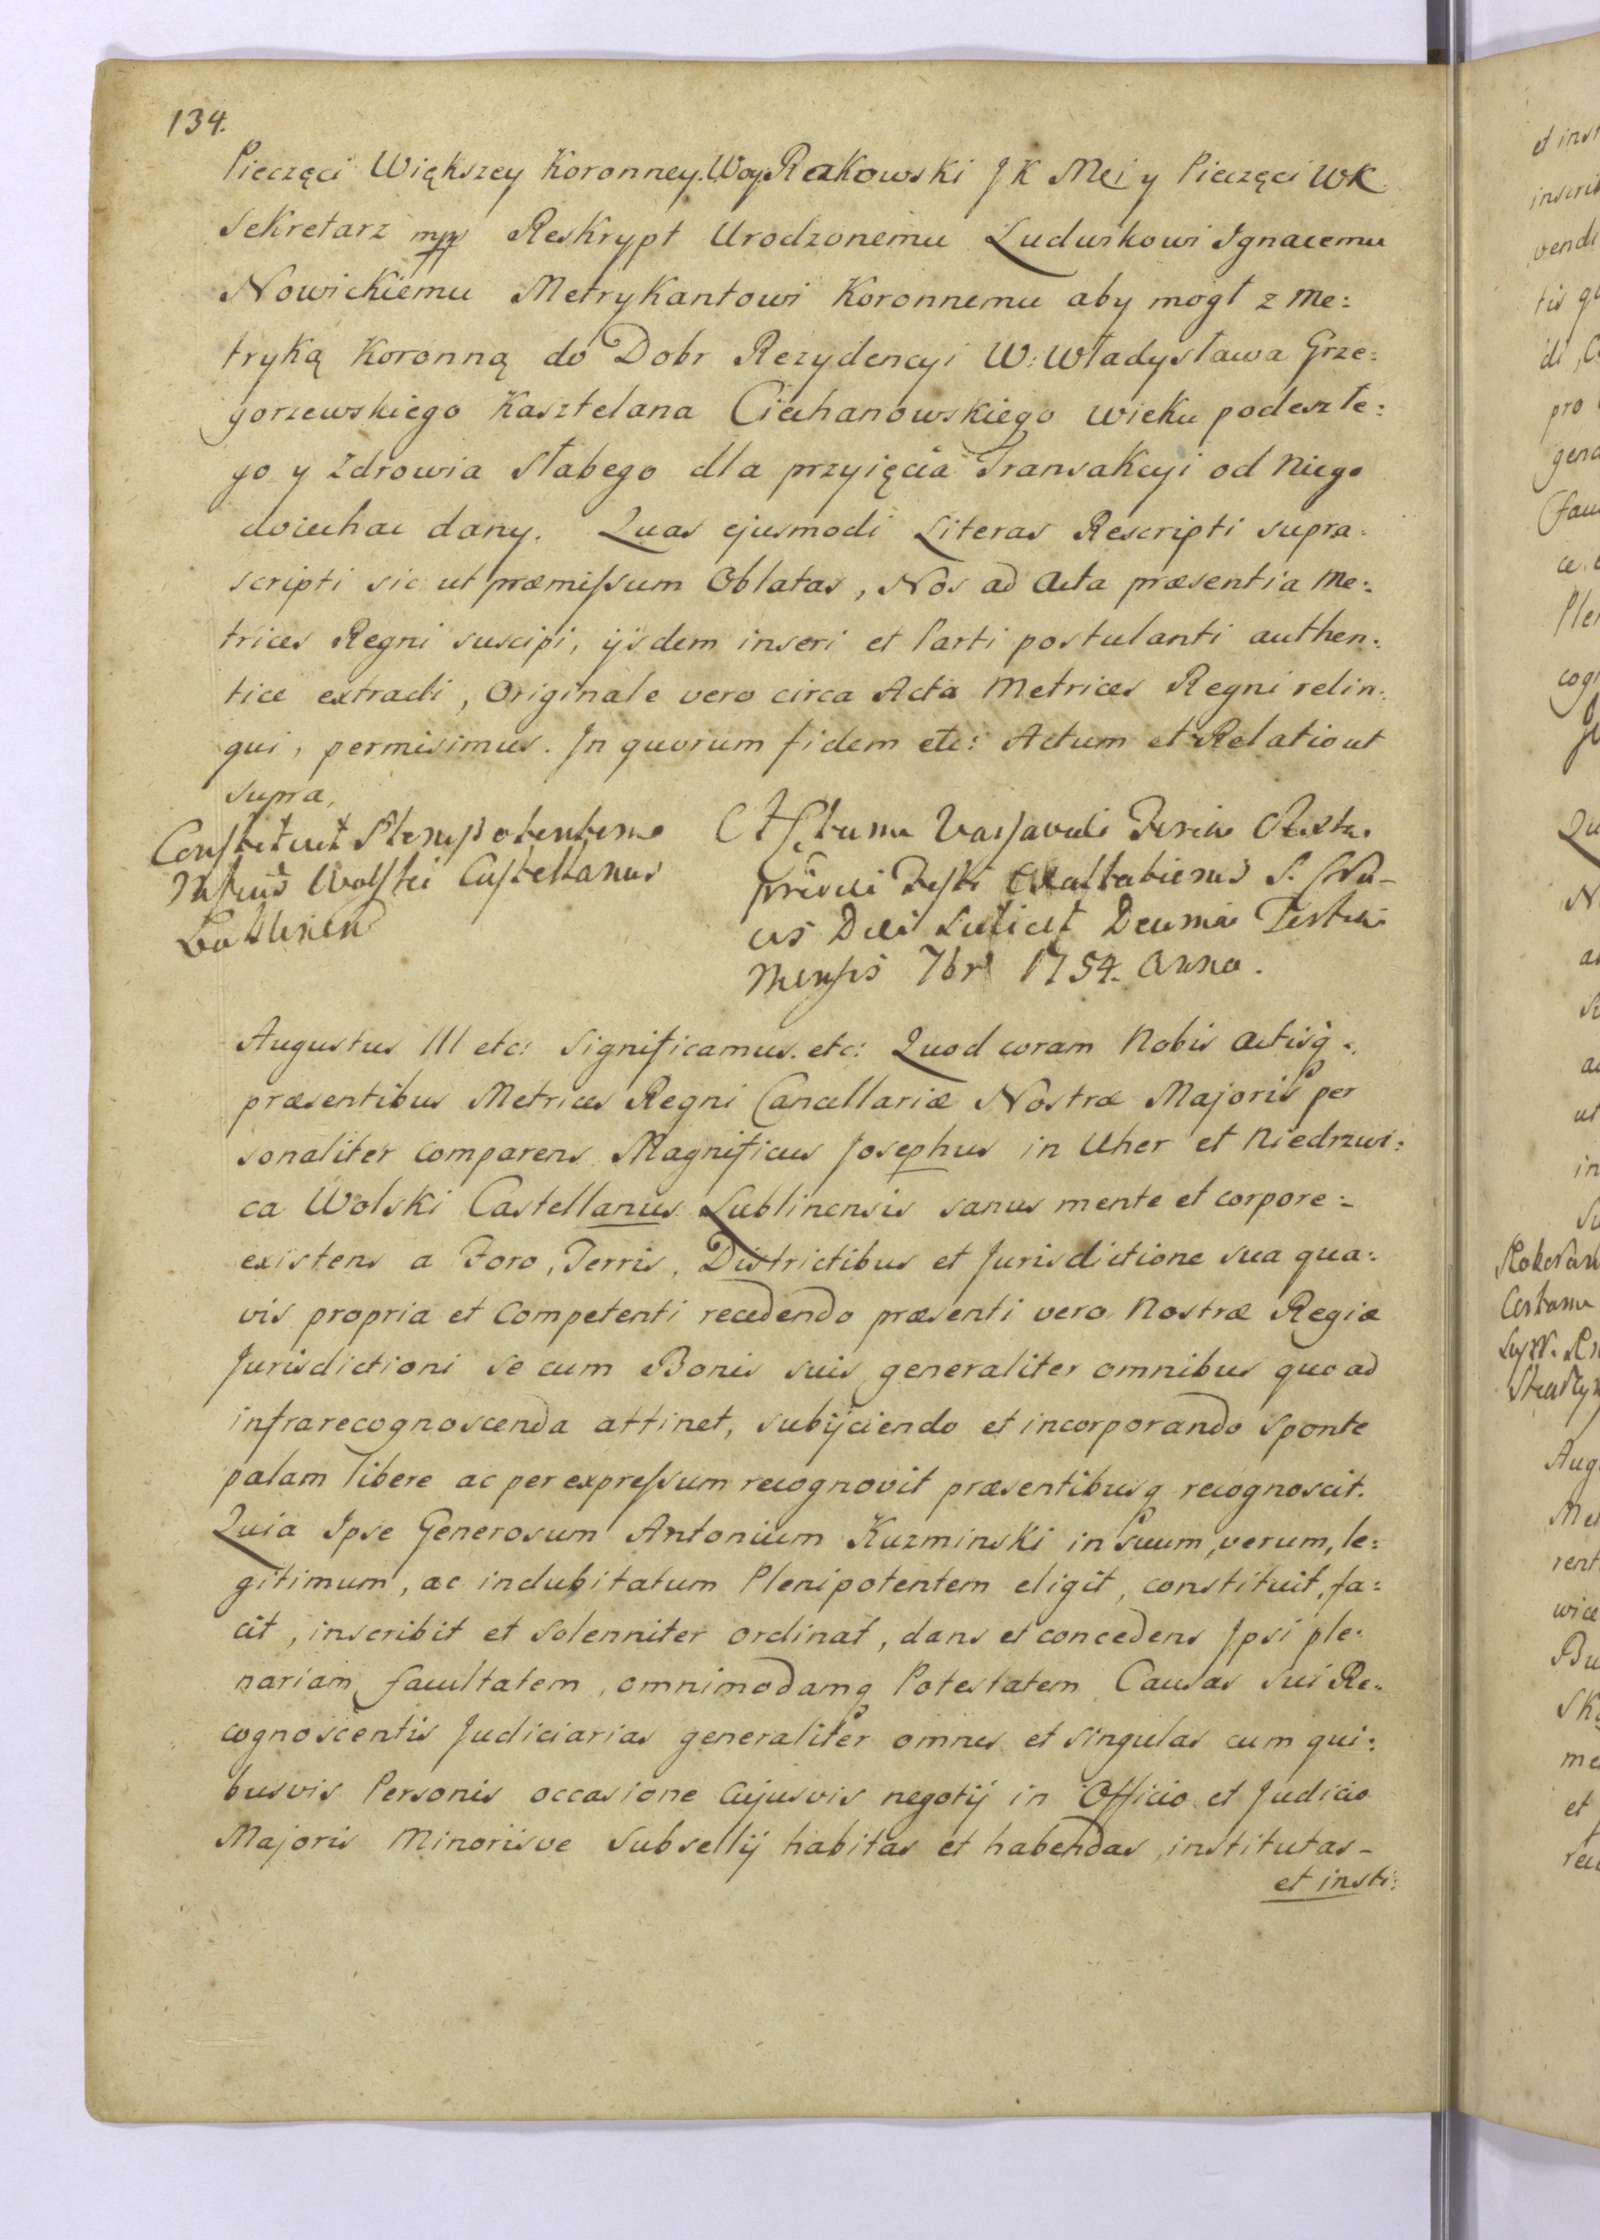 134.
Pieczęci Większey Koronney. Woy. Rakowski JK Mci y Pieczęci WK
Sekretarz mpp Reskrypt Urodzonemu Ludwikowi Ignacemu
Nowickiemu Metrykantowi Koronnemu aby mogł z Me:
tryką Koronną do Dobr Rezydencyi W: Władysława Grze:
gorzewskiego Kasztelana Ciechanowskiego wieku podeszłe:
go y Zdrowia słabego dla przyięcia Transakcyi od niego
dojechac dany. Quas ejusmodi Literas Rescripti supra:
scripti sic ut præmissum Oblatas, Nos ad Acta præsentia Me:
trices Regni suscipi, ijsdem inseri et Parti postulanti authen:
tice extradi, Originale vero circa Acta Metrices Regni relin:
qui, permisimus. In quorum fidem etc: Actum et Relatio ut
supra,
Constituit Plenipotentem
Mfcus Wolski Castellanus
Lublinen
Actum Varsaviæ Feria
pridie Festi Exaltationis S. Cru-
cis Dei scilicet Decima Tertia
Mensis 7bris 1754. Anno.
Augustus III etc: Significamus. etc: Quod coram Nobis Actisq:
præsentibus Metrices Regni Cancellariæ Nostræ Majoris per
sonaliter comparens Magnificus Josephus in Uher et Niedrzwi:
ca Wolski Castellanus Lublinensis sanus mente et corpore:
existens a Foro, Terris, Districtibus et Jurisdictione sua qua:
vis propria et Competenti recedendo præsenti vero Nostræ Regiæ
Jurisdictioni se cum Bonis suis generaliter omnibus quo ad
infrarecognoscenda attinet, subijciendo et incorporando sponte
palam libere ac per expressum recognovit præsentibusq recognoscit.
Quia Ipse Generosum Antonium Kuzminski in suum, verum, le:
gitimum, ac indubitatum Plenipotentem eligit, constituit, fa:
cit, inscribit et Solenniter ordinat, dans et concedens Ipsi ple:
nariam facultatem, omnimodamq Potestatem Causas sui Re:
cognoscentis Judiciarias generaliter omnes et singulas cum qui:
busvis Personis occasione cujusvis negotij in Officio et Judicio
Majoris Minorisve Subsellij habitas et habendas, institutas-
et insti: